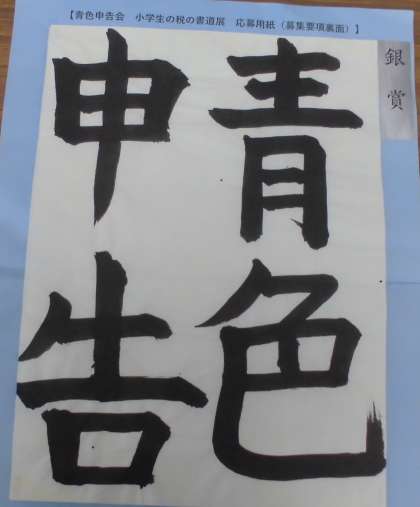 【青色申告会　小学生の税の書道展　応募用紙（募集要項裏面）】
銀賞
青色
申告